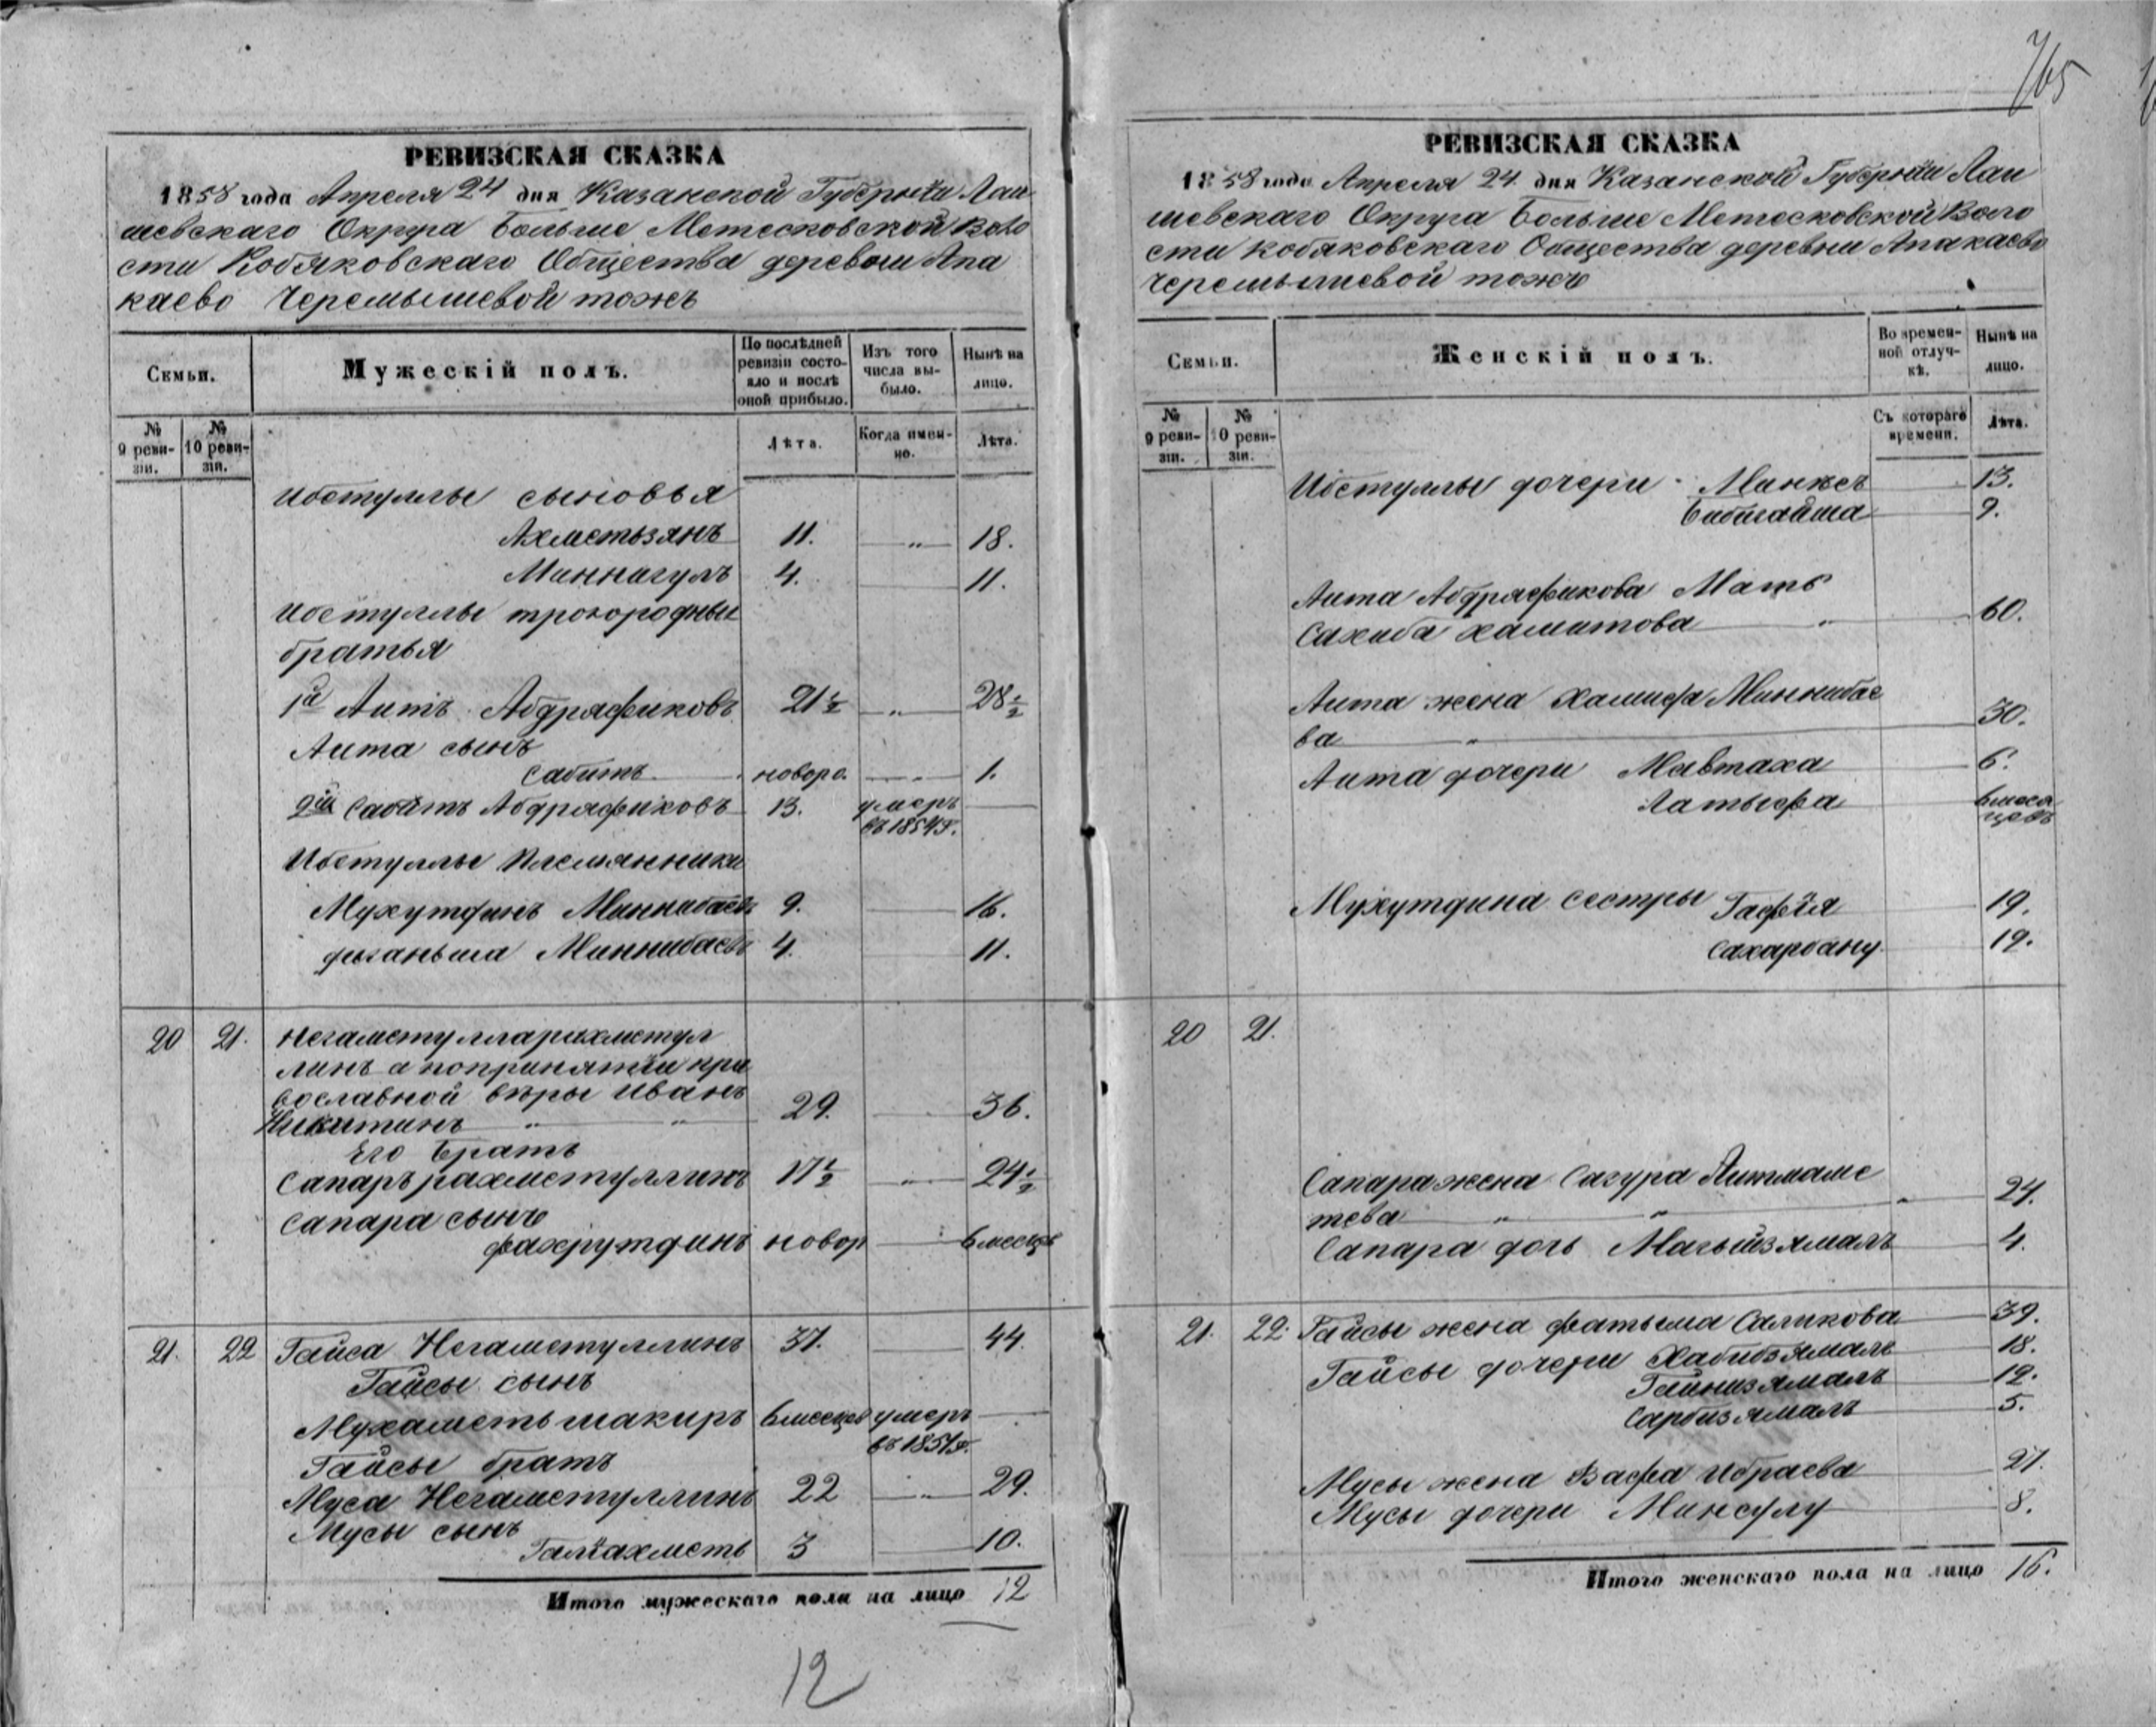 765
РЕВИЗСКАЯ СКАЗКА
1858 года Апреля 24 дня Казанской Губернiи Лаи
шевскаго Округа Больше Метесковской Воло
сти Кобяковскаго Общества деревни Апа
каево Черемышевой тожъ
Семьи.
Мужескiй полъ.
По послѣдней ревизiи состояло и послѣ оной прибыло.
Изъ того числа выбыло.
Нынѣ на лицо.
№ 9 ревизiи.
№ 10 ревизiи.
Лѣта.
Когда именно.
Лѣта.
Ибетуллы сыновья
Ахметьзянъ 11. — „ — 18.
Миннигулъ 4. — 11.
Ибетуллы троюродные
братья
1й Аитъ Абдряфиковъ 21½ — „ — 28½
Аита сынъ
Сабитъ новоро. — „ — 1.
2й Сабитъ Абдряфиковъ 13. умеръ въ 1854 г. —
Ибетуллы племянники
Мухутдинъ Миннибаевъ 9. — 16.
Миннибаевъ 4. — 11.
20 21. Негаметулла рахметул
линъ а попринятiи пра
вославной вѣры Иванъ
Никитинъ „ „ 29. — 36.
Его братъ
Сапаръ рахметуллинъ 17½ — „ — 24½
Сапара сынъ
фахрутдинъ новор — 6 месецъ
21. 22 Гайса Негаметуллинъ 37. — 44.
Гайсы сынъ
Мухаметь шакиръ 6 месецов умеръ въ 1851 г. —
Гайсы братъ
Муса Негаметуллинъ 22 — „ — 29.
Мусы сынъ
Галiахметь 3 — 10.
Итого мужескаго пола на лицо 12
12
РЕВИЗСКАЯ СКАЗКА
1858 года Апреля 24 дня Казанской Губернiи Лаи
шевскаго Округа Больше Метесковской Воло
сти Кобяковскаго Общества деревни Апакаево
Черемышевой тожъ
Семьи.
Женскiй полъ.
Во временной отлучкѣ.
Нынѣ на лицо.
№ 9 ревизiи.
№ 10 ревизiи.
Съ котораго времени.
Лѣта.
Ибетуллы дочери Минкеъ — 13.
Бибигайша — 9.
Аита Абдряфикова Мать
Сахиба хамитова „ — 60.
Аита жена Халифа Миннибае
ва „ — 30.
Аита дочери Мавтаха — 6.
Латыфа — 6 меся цевъ
Мухутдина сестры Гафiя — 19.
Сахарбану — 19.
20 21.
Сапара жена Сагура Аитмаме
това „ „ — 24.
Сапара дочь Магыйзямалъ — 4.
21. 22. Гайсы жена фатыма Саликова — 39.
Гайсы дочери Хабибзямалъ — 18.
Гайнизямалъ — 12.
Сарбизямалъ — 5.
Мусы жена Вафа Ибраева — 27.
Мусы дочери Минсулу — 8.
Итого женскаго пола на лицо 16.